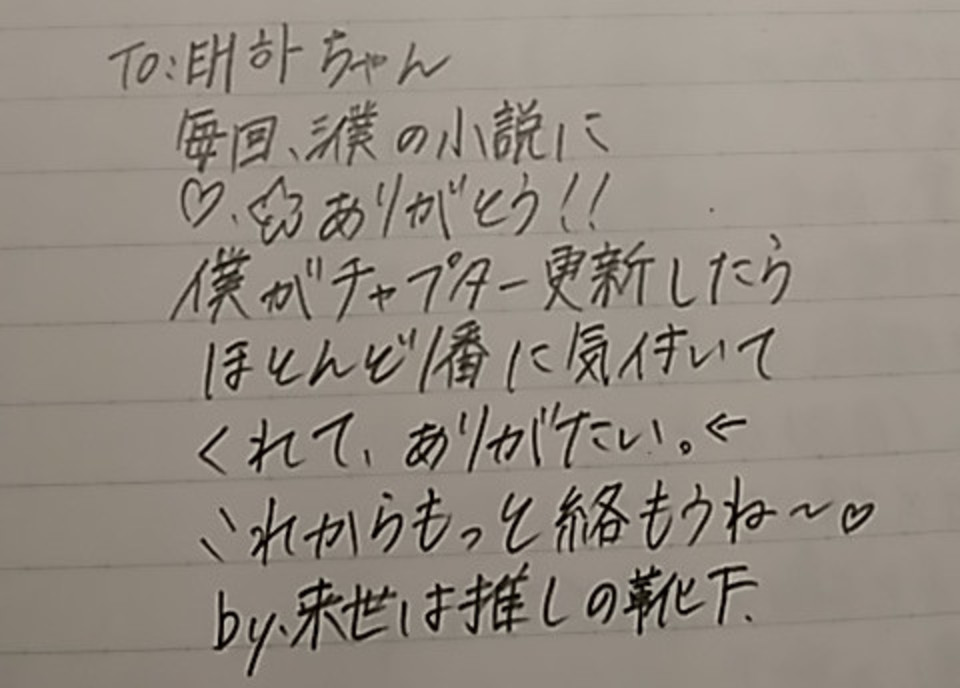 To:태하ちゃん
毎回、僕の小説に
♡、☆ありがとう!!
僕がチャプター更新したら
ほとんど1番に気付いて
くれて、ありがたい。←
これからもっと絡もうね〜♡
by.来世は推しの靴下.